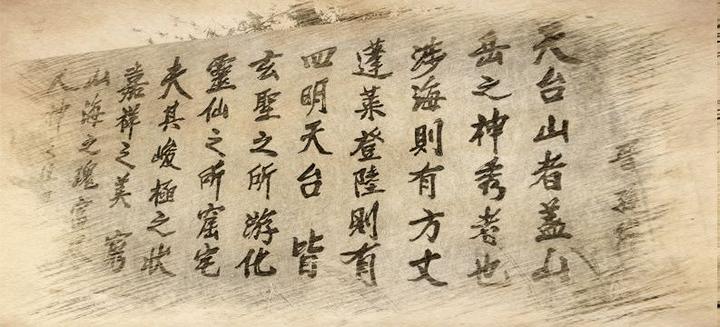 晉孫綽
天台山者蓋山
岳之神秀者也
涉海則有方丈
蓬萊登陸則有
四明天台皆
玄聖之所游化
靈仙之所窟宅
夫其峻極之狀
嘉祥之美窮
山海之瑰富
人神之